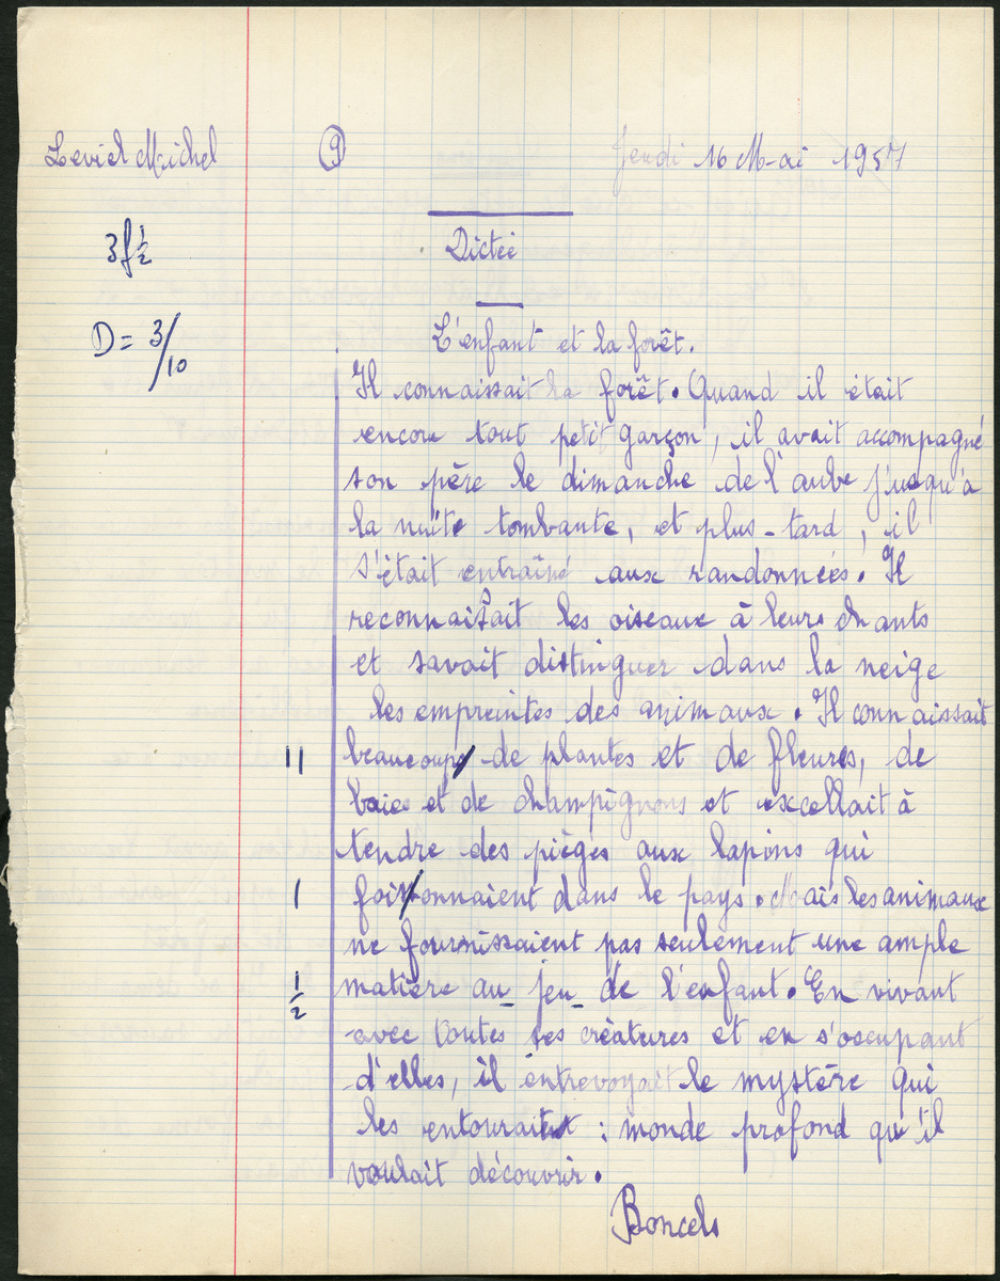 Leviel Michel
9
Jeudi 16 Mai 1957
3f ½
Dictée
D = 3/10
L'enfant et la forêt.
Il connaissait la forêt. Quand il était
encore tout petit garçon, il avait accompagné
son père le dimanche de l'aube jusqu'à
la nuite tombante, et plus-tard, il
s'était entraîné aux randonnées. Il
reconnaissait les oiseaux à leurs chants
et savait distinguer dans la neige
les empreintes des animaux. Il connaissait
11 beaucoup de plantes et de fleures, de
baies et de champignons et excellait à
tendre des pièges aux lapins qui
1 foisonnaient dans le pays. Mais les animaux
ne fournissaient pas seulement une ample
½ matière au jeu de l'enfant. En vivant
avec toutes ses créatures et en s'occupant
d'elles, il entrevoyait le mystère qui
les entourait : monde profond qu'il
voulait découvrir.
Boncels